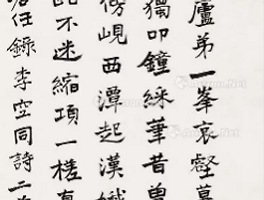 廬弟一峯哀壑草
獨叩鐘綵筆昔曾
傍峴西潭起漢
不迷縮項一槎真
任錄李空同詩二首